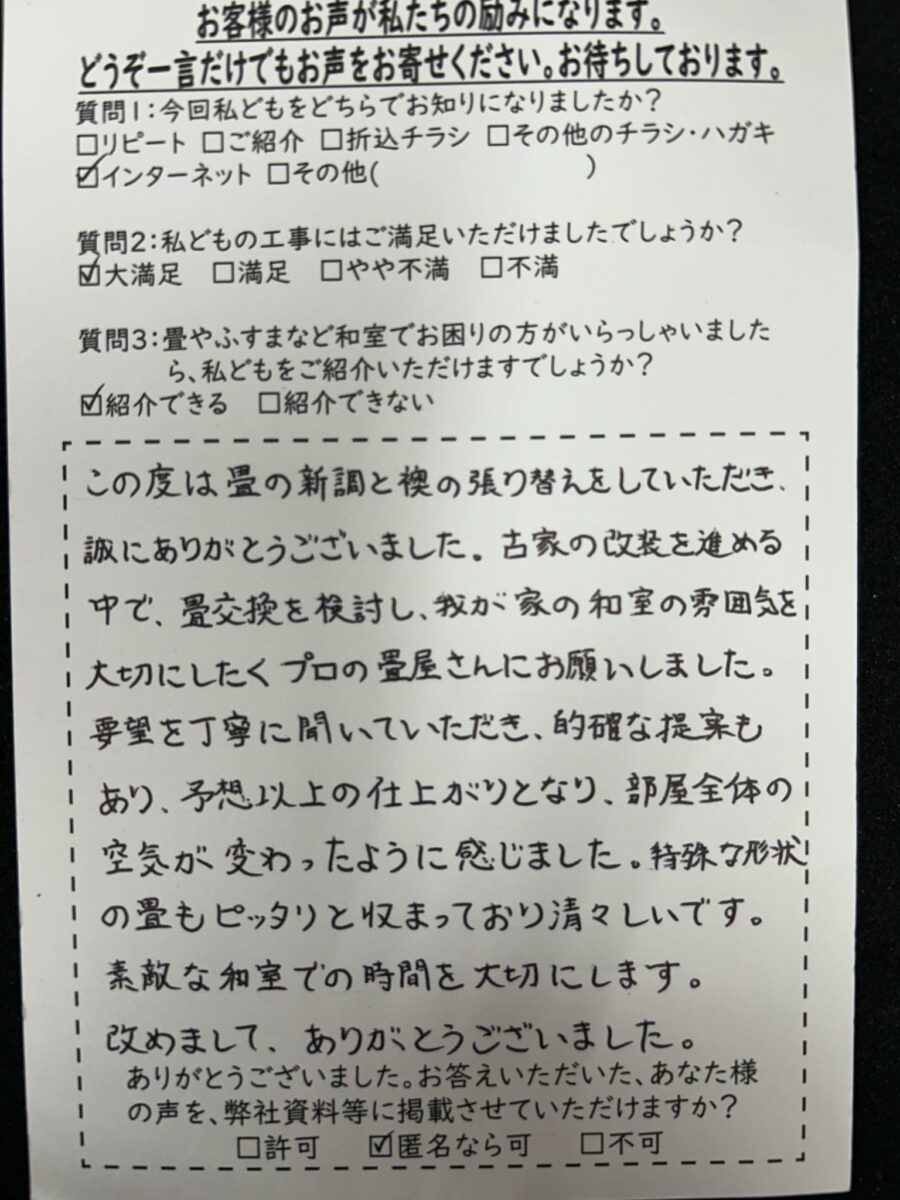 お客様のお声が私たちの励みになります。
どうぞ一言だけでもお声をお寄せください。お待ちしております。
質問1:今回私どもをどちらでお知りになりましたか?
□リピート □ご紹介 □折込チラシ □その他のチラシ・ハガキ
☑インターネット □その他( )
質問2:私どもの工事にはご満足いただけましたでしょうか?
☑大満足 □満足 □やや不満 □不満
質問3:畳やふすまなど和室でお困りの方がいらっしゃいました
ら、私どもをご紹介いただけますでしょうか?
☑紹介できる □紹介できない
この度は畳の新調と襖の張り替えをしていただき、
誠にありがとうございました。古家の改装を進める
中で、畳交換を検討し、我が家の和室の雰囲気を
大切にしたくプロの畳屋さんにお願いしました。
要望を丁寧に聞いていただき、的確な提案も
あり、予想以上の仕上がりとなり、部屋全体の
空気が変わったように感じました。特殊な形状
の畳もピッタリと収まっており清々しいです。
素敵な和室での時間を大切にします。
改めまして、ありがとうございました。
ありがとうございました。お答えいただいた、あなた様
の声を、弊社資料等に掲載させていただけますか?
□許可 ☑匿名なら可 □不可